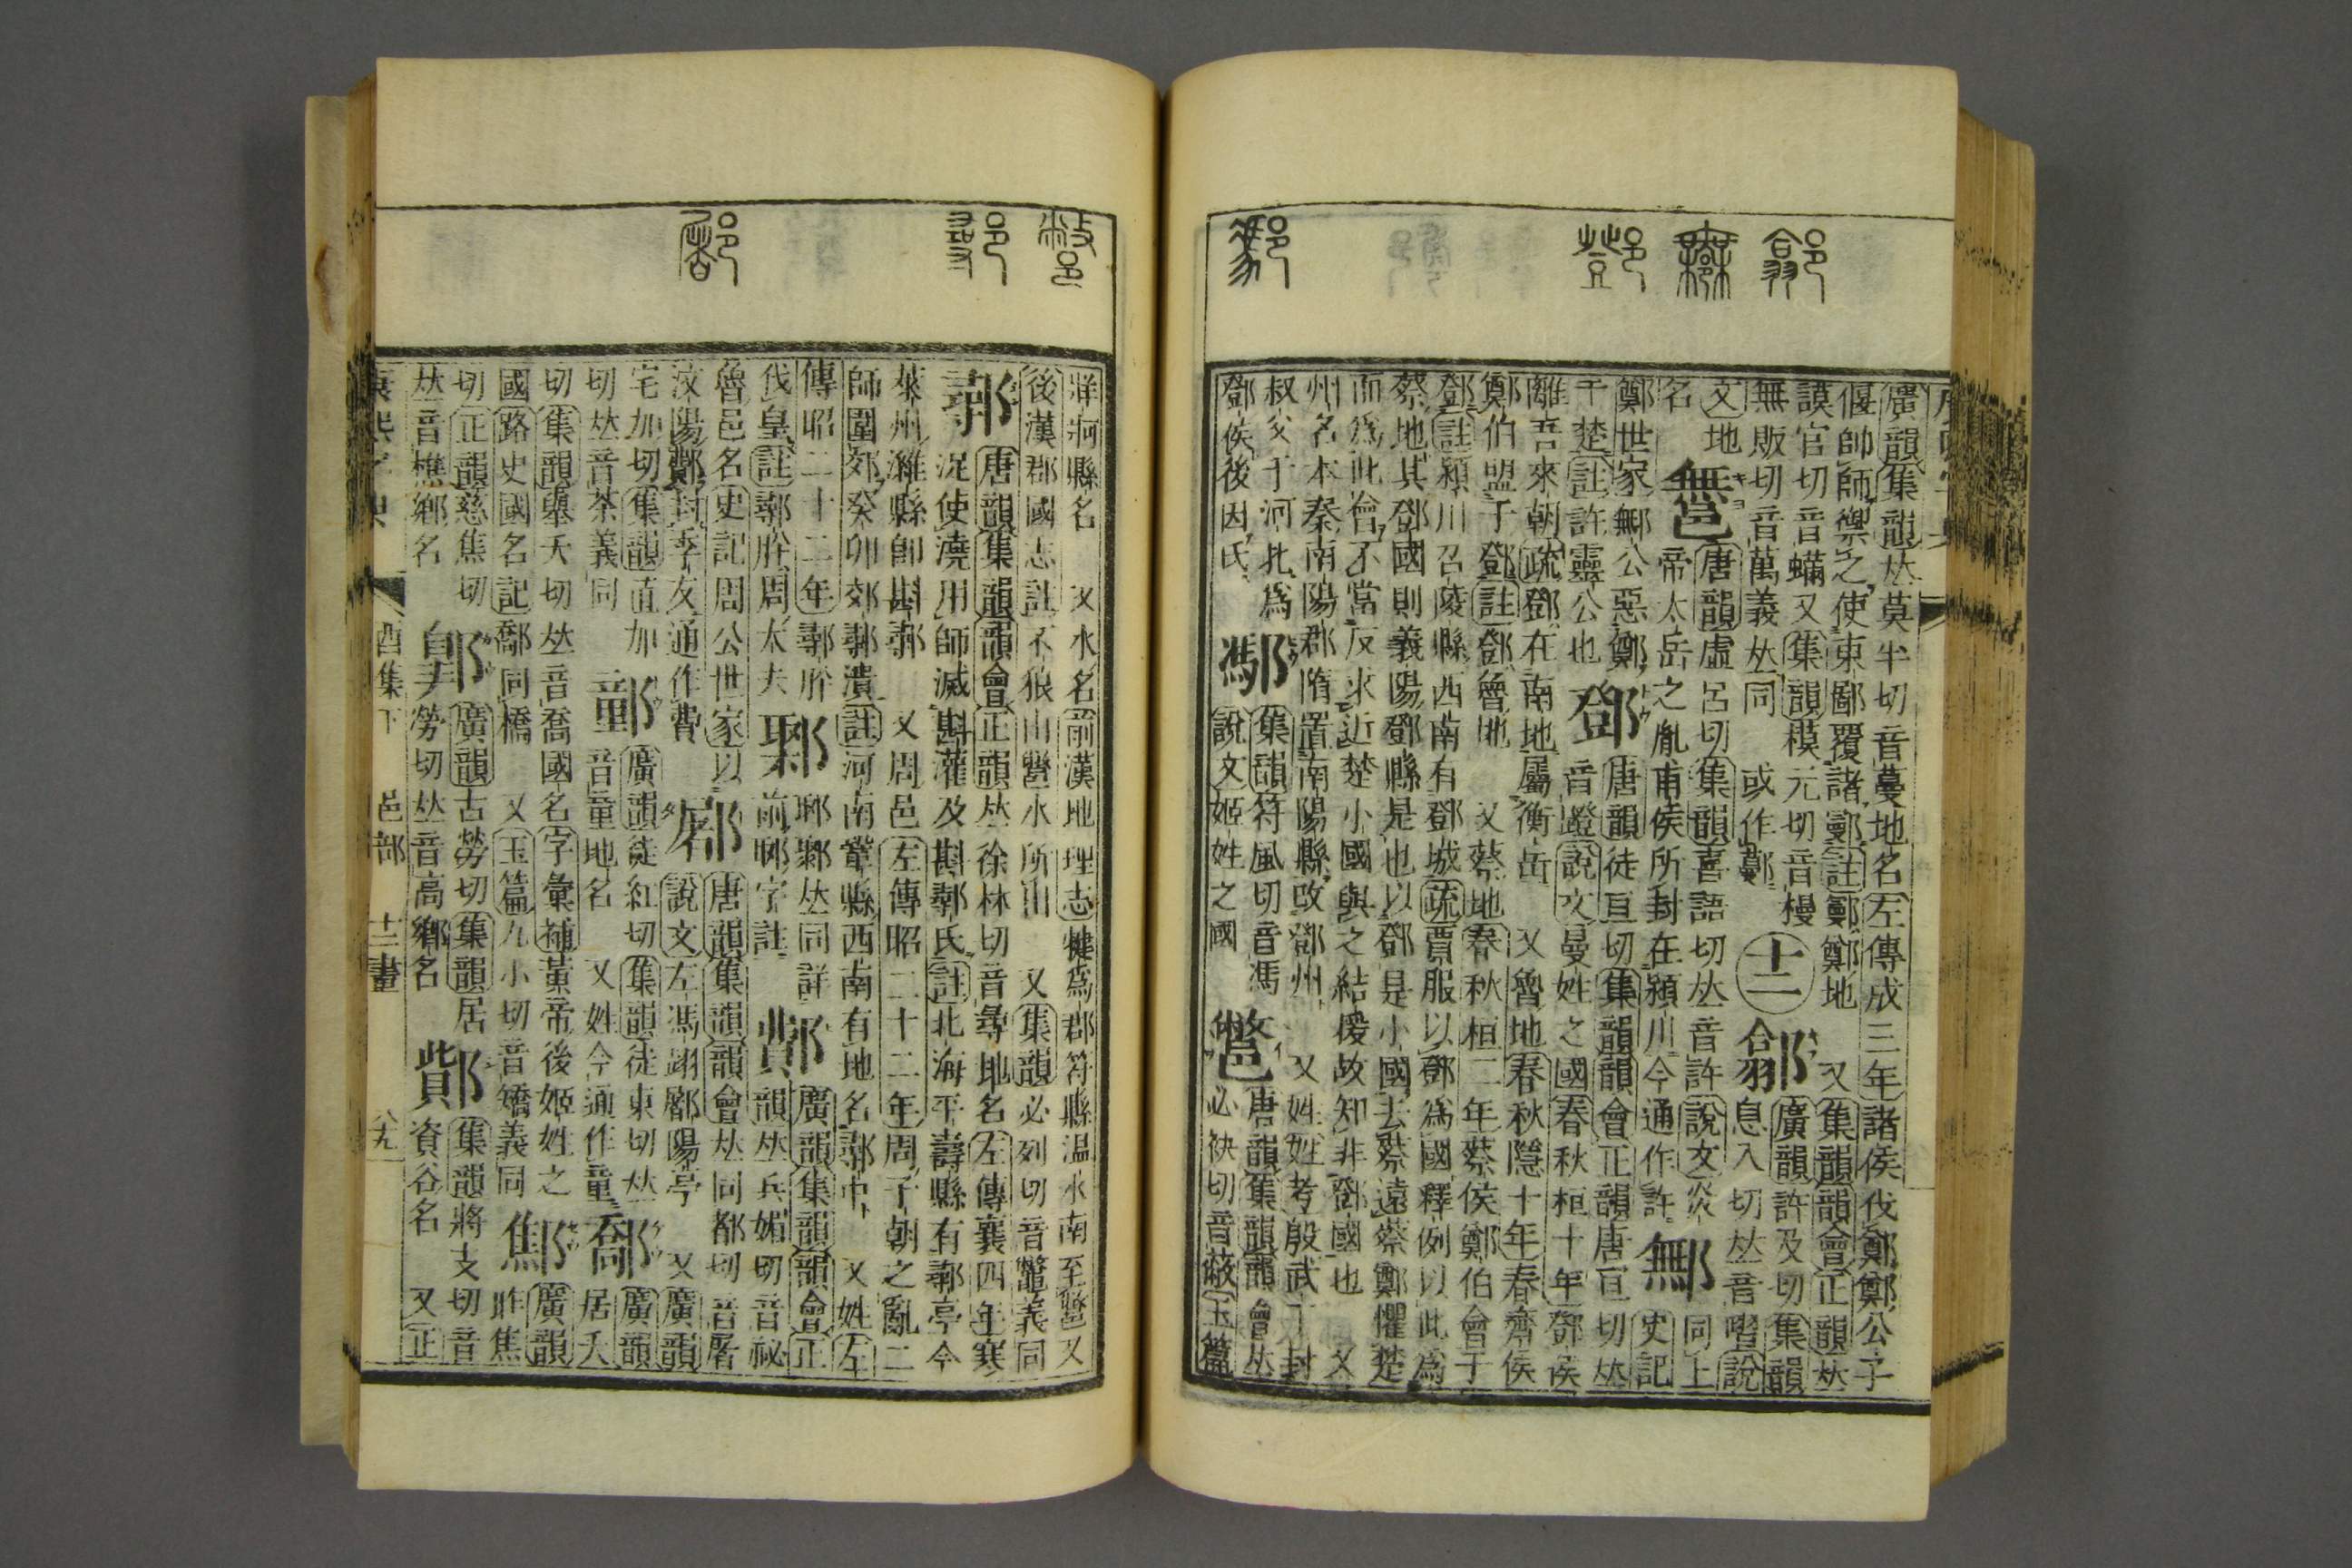 廣韻集韻𠀤莫半切音蔓地名左傳成三年諸侯伐鄭鄭公子
偃帥師禦之使東鄙覆諸鄤註鄤鄭地 又集韻韻會正韻𠀤
謨官切音瞞又集韻模元切音樠
無販切音萬義𠀤同 或作
十二
廣韻許及切集韻
息入切𠀤音說
文地
名
唐韻虛呂切集韻喜語切𠀤音許說文炎
帝太岳之胤甫侯所封在潁川今通作許
鄦
同上
史記
鄭世家鄦公惡鄭
于楚註許靈公也
鄧
唐韻徒亘切集韻韻會正韻唐亘切𠀤
音蹬說文曼姓之國春秋桓十年鄧侯
離吾來朝疏鄧在南地屬衡岳 又魯地春秋隱十年春齊侯
鄭伯盟于鄧註鄧魯地 又蔡地春秋桓二年蔡侯鄭伯會于
鄧註潁川召陵縣西南有鄧城疏賈服以鄧爲國釋例以此爲
蔡地其鄧國則義陽鄧縣是也以鄧是小國去蔡遠蔡鄭懼楚
而爲此會不當反求近楚小國與之結援故知非鄧國也 又
州名本秦南陽郡隋置南陽縣改鄧州 又姓姓考殷武丁封
叔父于河北爲
鄧侯後因氏
集韻符風切音馮
說文姬姓之國
鄨
唐韻集韻韻會𠀤
必袂切音蔽玉篇
牂牁縣名 又水名前漢地理志犍爲郡符縣溫水南至鄨又
後漢郡國志註不狼山鄨水所出 又集韻必列切音鼈義同
鄩
唐韻集韻韻會正韻𠀤徐林切音尋地名左傳襄四年寒
浞使澆用師滅斟灌及斟鄩氏註北海平壽縣有鄩亭今
萊州濰縣卽斟鄩 又周邑左傳昭二十二年周子朝之亂二
師圍郊癸卯郊鄩潰註河南鞏縣西南有地名鄩中 又姓左
傳昭二十二年鄩肸
伐皇註鄩肸周大夫
鄹
郰鄹𠀤同詳
前郰字註
鄪
廣韻集韻韻會正
韻𠀤兵媚切音祕
魯邑名史記周公世家以
汶陽鄪封季友通作費
唐韻集韻韻會𠀤同都切音屠
說文左馮翊郃陽亭 又廣韻
宅加切集韻直加
切𠀤音茶義同
廣韻徒紅切集韻徒東切𠀤
音童地名 又姓今通作童
廣韻
居夭
切集韻舉夭切𠀤音喬國名字彙補黃帝後姬姓之
國路史國名記鄗同橋 又玉篇九小切音矯義同
廣韻
昨焦
切正韻慈焦切
𠀤音樵鄉名
廣韻古勞切集韻居
勞切𠀤音高鄉名
集韻將支切音
資谷名 又正
康熙字典
酉集下 邑部 十二畫
八九